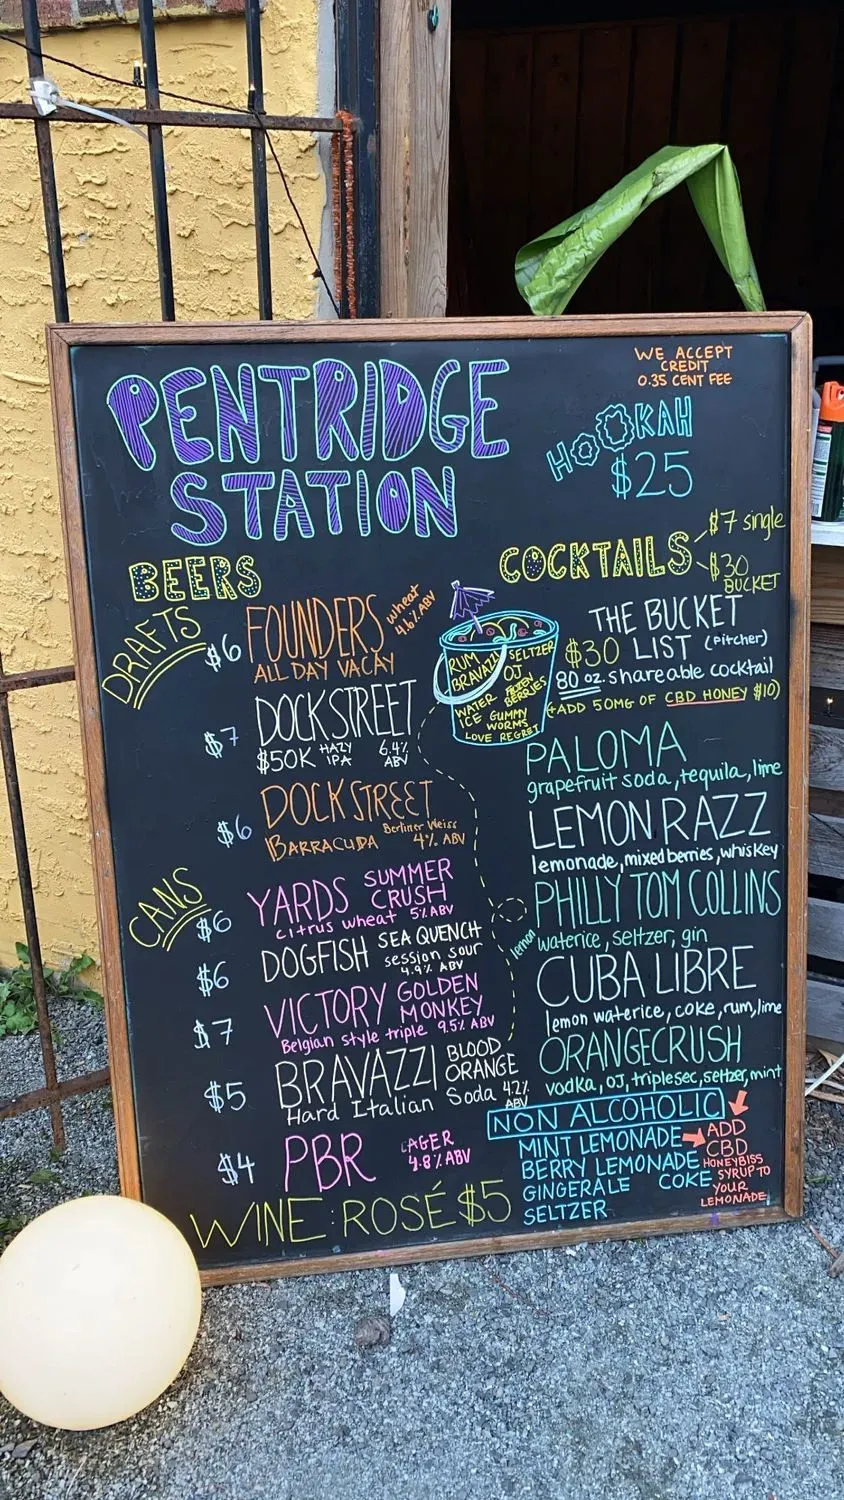 WE ACCEPT
CREDIT
0.35 CENT FEE
PENTRIDGE
STATION
HOOKAH
$25
BEERS
DRAFTS
$6 FOUNDERS wheat 4.6% ABV
ALL DAY VACAY
$7 DOCKSTREET
$50K HAZY IPA 6.4% ABV
$6 DOCKSTREET
BARRACUDA Berliner Weiss 4% ABV
CANS
$6 YARDS SUMMER CRUSH
citrus wheat 5% ABV
$6 DOGFISH SEA QUENCH
session sour
4.9% ABV
$7 VICTORY GOLDEN MONKEY
Belgian style triple 9.5% ABV
$5 BRAVAZZI BLOOD ORANGE
Hard Italian Soda 4.2% ABV
$4 PBR LAGER
4.8% ABV
WINE: ROSÉ $5
COCKTAILS $7 single
$30 BUCKET
RUM SELTZER
BRAVAZZI OJ
WATER ICE FROZEN BERRIES
GUMMY WORMS
LOVE REGRET
THE BUCKET
$30 LIST (Pitcher)
80 oz. shareable cocktail
(+ADD 50MG OF CBD HONEY $10)
PALOMA
grapefruit soda, tequila, lime
LEMON RAZZ
lemonade, mixed berries, whiskey
PHILLY TOM COLLINS
lemon waterice, seltzer, gin
CUBA LIBRE
lemon waterice, coke, rum, lime
ORANGECRUSH
vodka, OJ, triplesec, seltzer, mint
NON ALCOHOLIC
MINT LEMONADE
BERRY LEMONADE
GINGERALE COKE
SELTZER
ADD
CBD
HONEYBISS
SYRUP TO
YOUR
LEMONADE